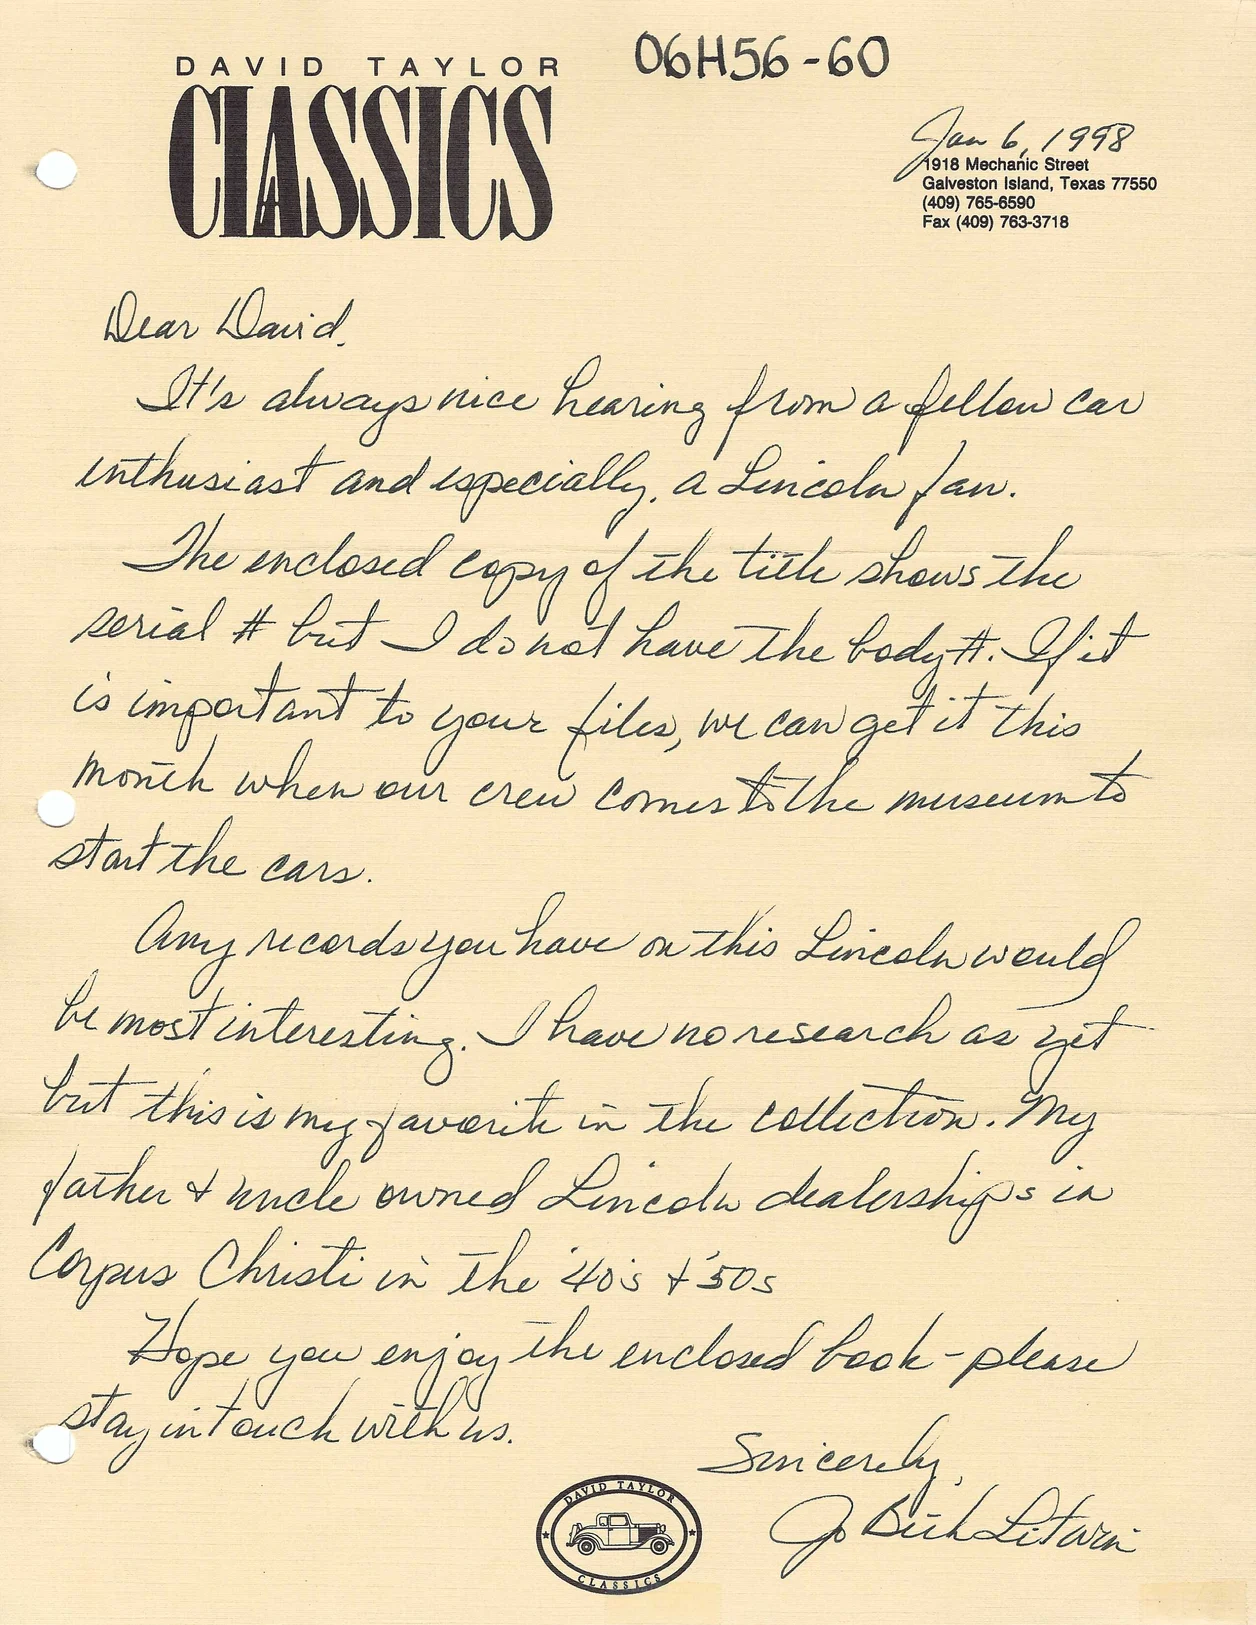 DAVID TAYLOR
CLASSICS
06H56-60
Jan 6, 1998
1918 Mechanic Street
Galveston Island, Texas 77550
(409) 765-6590
Fax (409) 763-3718
Dear David,
It's always nice hearing from a fellow car
enthusiast and especially, a Lincoln fan.
The enclosed copy of the title shows the
serial # but I do not have the body #. If it
is important to your files, we can get it this
month when our crew comes to the museum to
start the cars.
Any records you have on this Lincoln would
be most interesting. I have no research as yet
but this is my favorite in the collection. My
father & uncle owned Lincoln dealerships in
Corpus Christi in the '40's & '50s
Hope you enjoy the enclosed book - please
stay in touch with us.
Sincerely,
Jo
DAVID TAYLOR
CLASSICS